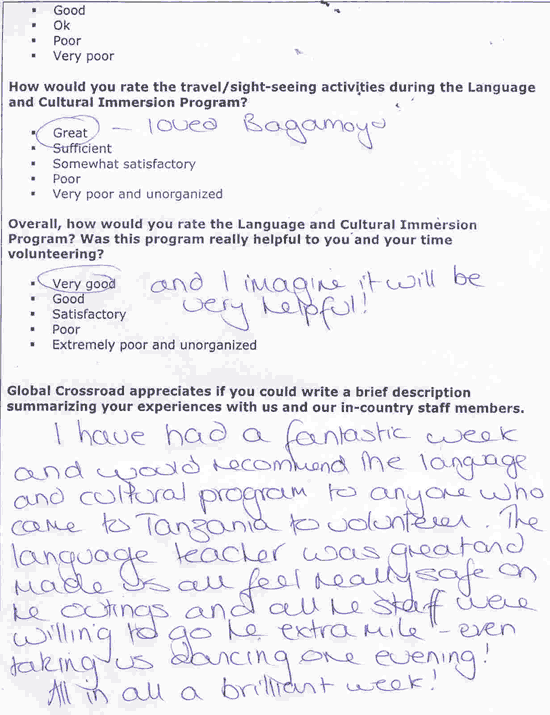 ▪ Good
▪ Ok
▪ Poor
▪ Very poor
How would you rate the travel/sight-seeing activities during the Language
and Cultural Immersion Program?
▪ Great – loved Bagamoyo
▪ Sufficient
▪ Somewhat satisfactory
▪ Poor
▪ Very poor and unorganized
Overall, how would you rate the Language and Cultural Immersion
Program? Was this program really helpful to you and your time
volunteering?
▪ Very good and I imagine it will be
very helpful!
▪ Good
▪ Satisfactory
▪ Poor
▪ Extremely poor and unorganized
Global Crossroad appreciates if you could write a brief description
summarizing your experiences with us and our in-country staff members.
I have had a fantastic week
and would recommend the language
and cultural program to anyone who
came to Tanzania to volunteer. The
language teacher was great and
made us all feel really safe on
the outings and all the staff were
willing to go the extra mile - even
taking us dancing one evening!
All in all a brilliant week!